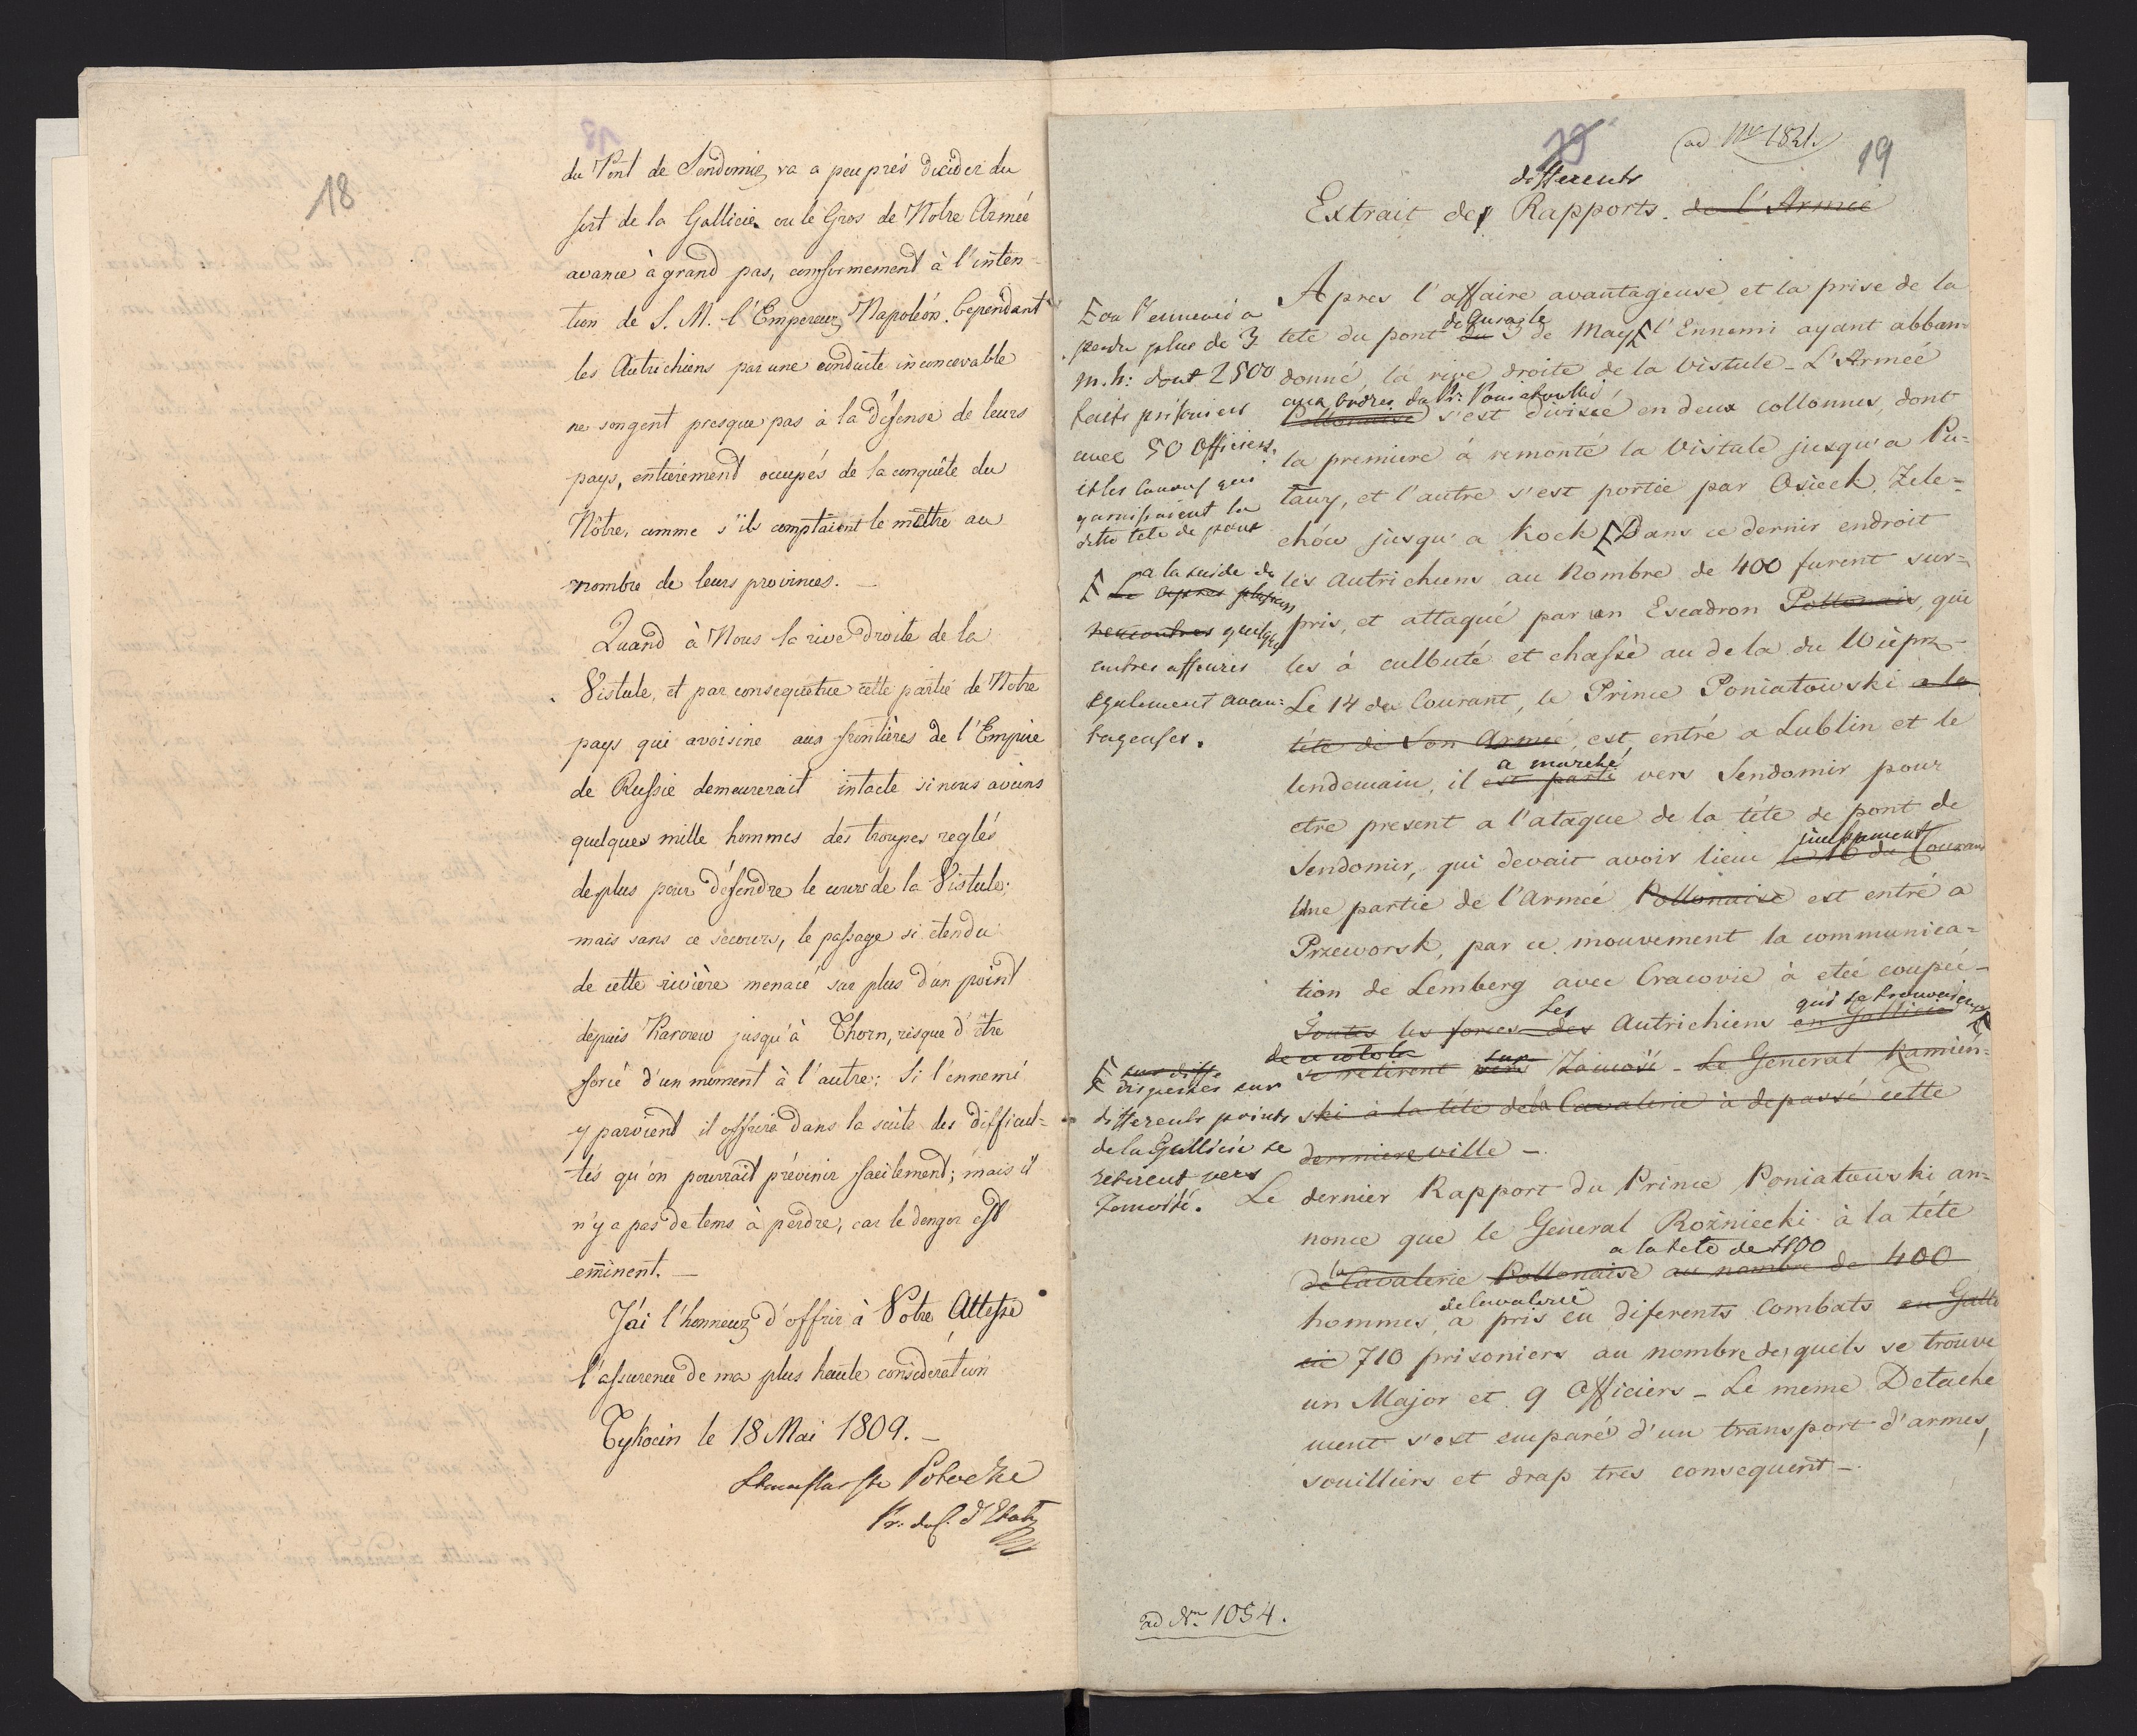 18
du Pont de Sendomir va a peu près decider du
sort de la Gallicie ou le Gros de Notre Armée
avance à grand pas, conformement à l'inten-
tion de S. M. l'Empereur Napoléon. Cependant
les Autrichiens par une conduite inconcevable
ne songent presque pas à la défense de leurs
pays, entièrement occupés de la conquête du
Nôtre, comme s'ils comptaient le mettre au
nombre de leurs provinces. —
Quand à Nous la rive droite de la
Vistule, et par consequence cette partie de Notre
pays qui avoisine aux frontières de l'Empire
de Russie demeurerait intacte si nous avions
quelques mille hommes des troupes reglés
de plus pour défendre le cours de la Vistule;
mais sans ce secours, le passage si étendu
de cette rivière menacé sur plus d'un point
depuis Karczew jusqu'à Thorn, risque d'être
forcé d'un moment à l'autre; Si l'ennemi
y parvient il offrira dans la suite des difficul-
tés qu'on pourrait prévenir facilement; mais il
n'y a pas de tems à perdre, car le danger est
eminent. —
J'ai l'honneur d'offrir à Votre Altesse
l'assurence de ma plus haute consideration
Tykocin le 18 Mai 1809. —
Stanislas Potocki
Pr. du C. d'Etat
ad Nro 1821.
19
differents
Extrait des Rapports. de l'Armée
Apres l'affaire avantageuse et la prise de la
de Gura le
tete du pont du 3 de May l'Ennemi ayant abban-
donné, la rive droite de la Vistule - L'Armée
aux Ordres du Pr: Poniatowski
Pollonaise s'est divisée en deux collonnes, dont
la premiere à remonté la Vistule jusqu'a Pu-
lawy, et l'autre s'est portée par Osieck, Zele-
chów jusqu'a Kock Dans ce dernir endroit
les Autrichiens au Nombre de 400 furent sur-
pris, et attaqué par un Escadron Pollonais, qui
les à culbuté et chassé au dela du Wieprz -
Le 14 du Courant, le Prince Poniatowski a la
tête de Son Armée, est entré a Lublin et le
a marché
lendemain, il est parti vers Sendomir pour
etre present a l'ataque de la tête de pont de
incessament
Sendomir, qui devait avoir lieu le 16 du Courant
Une partie de l'Armée Pollonaise est entré a
Przeworsk, par ce mouvement la communica-
tion de Lemberg avec Cracovie à eteé coupée -
Les
qui se trouvaient
Toutes les forces des Autrichiens en Gallicie
de ce coté la
sur
se retirent vers Zamość - Le General Kamień-
ski à la tête de la Cavalerie à depassé cette
derniere ville -
Le dernier Rapport du Prince Poniatowski an-
nonce que le General Rożniecki à la tête
a la tete de 400
de la Cavalerie Pollonaise au nombre de 400
de Cavalerie
hommes, a pris en diferents Combats en Galli
cie 710 prisoniers au nombre desquels se trouve
un Major et 9 Officiers - Le meme Detache
ment s'est emparé d'un transport d'armes,
souilliers et drap tres consequent -
ou l'ennemi a
perdu plus de 3
m. h: dont 2500
faits prisoniers
avec 50 Officiers,
et les Canons qui
garnissaient la
dite tete de pont
a la suide de
Le apres plusieurs
rencontres quelques
autres affaires
egalement avan-
tageuses.
sur diffe
disperses sur
differents points
de la Gallicie se
retirent vers
Zamosté.
ad Nrm 1054.